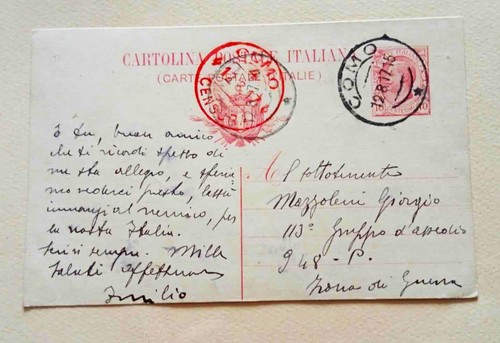 CARTOLINA POSTALE ITALIANA
(CARTE POSTALE D'ITALIE)
COMO
CENSURA
COMO
12.8.17.18
10
È tu, buon amico
che ti ricordi spesso di
me sta allegro, e speriamo
rivederci presto, lassù
innanzi al nemico, per
la nostra Italia.
Scrivi sempre. Mille
saluti affettuosi
Emilio
Al sottotenente
Mazzoleni Giorgio
113° Gruppo d'assedio
948 - P.
Zona di Guerra